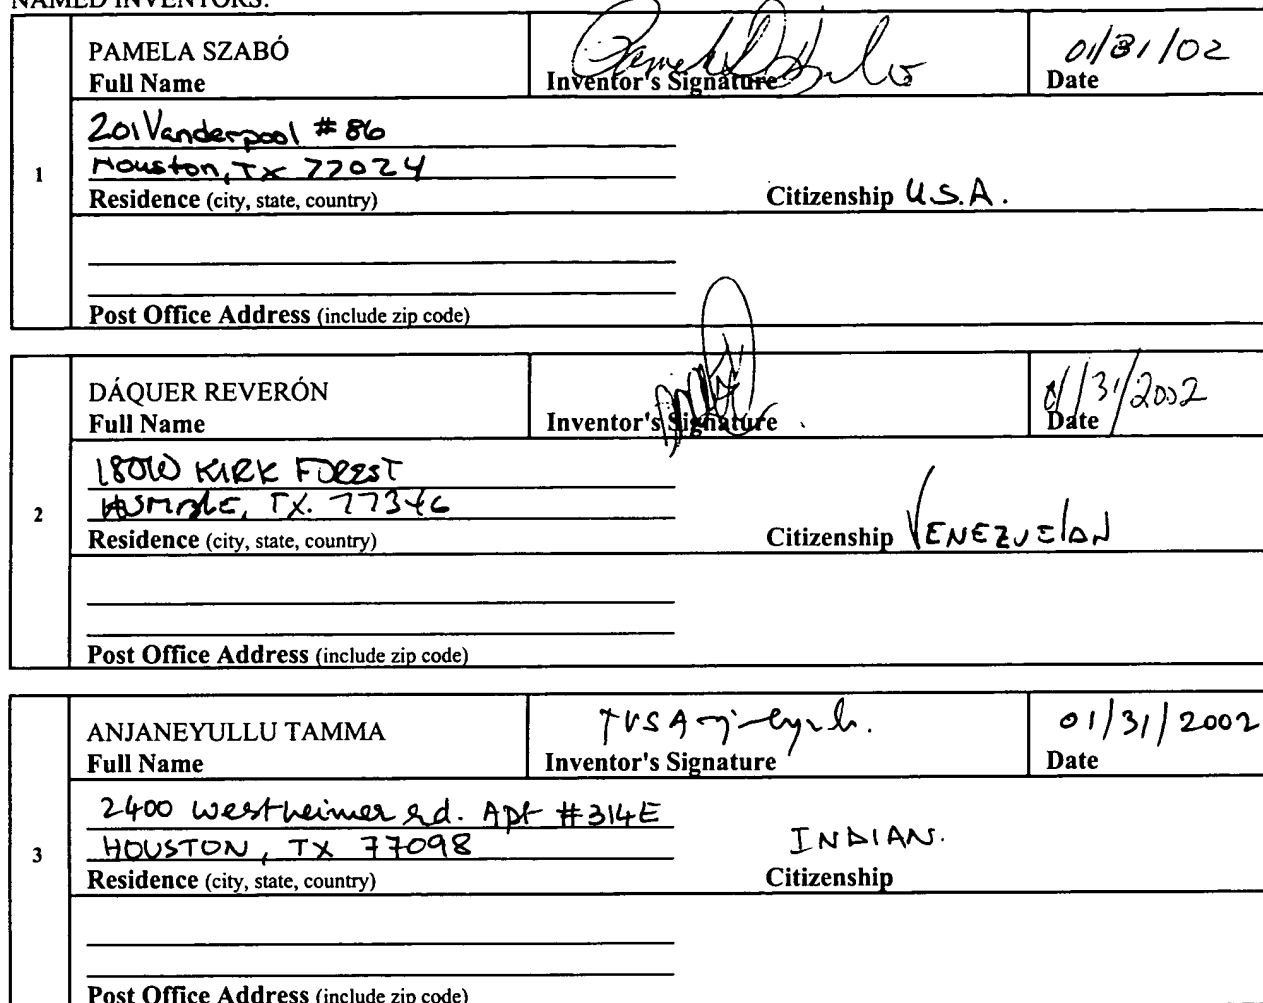 NAMED INVENTORS:
PAMELA SZABÓ
01/31/02
Full Name
Inventor's Signature
Date
201 Vanderpool # 86
Houston, TX 77024
1
Residence (city, state, country)
Citizenship U.S.A.
Post Office Address (include zip code)
DÁQUER REVERÓN
01/31/2002
Full Name
Inventor's Signature
Date
KIRK FOREST
HUMBLE, TX. 77346
2
Residence (city, state, country)
Citizenship VENEZUELAN
Post Office Address (include zip code)
ANJANEYULLU TAMMA
01/31/2002
Full Name
Inventor's Signature
Date
2400 Westheimer rd. Apt #314E
HOUSTON, TX 77098
INDIAN.
3
Residence (city, state, country)
Citizenship
Post Office Address (include zip code)